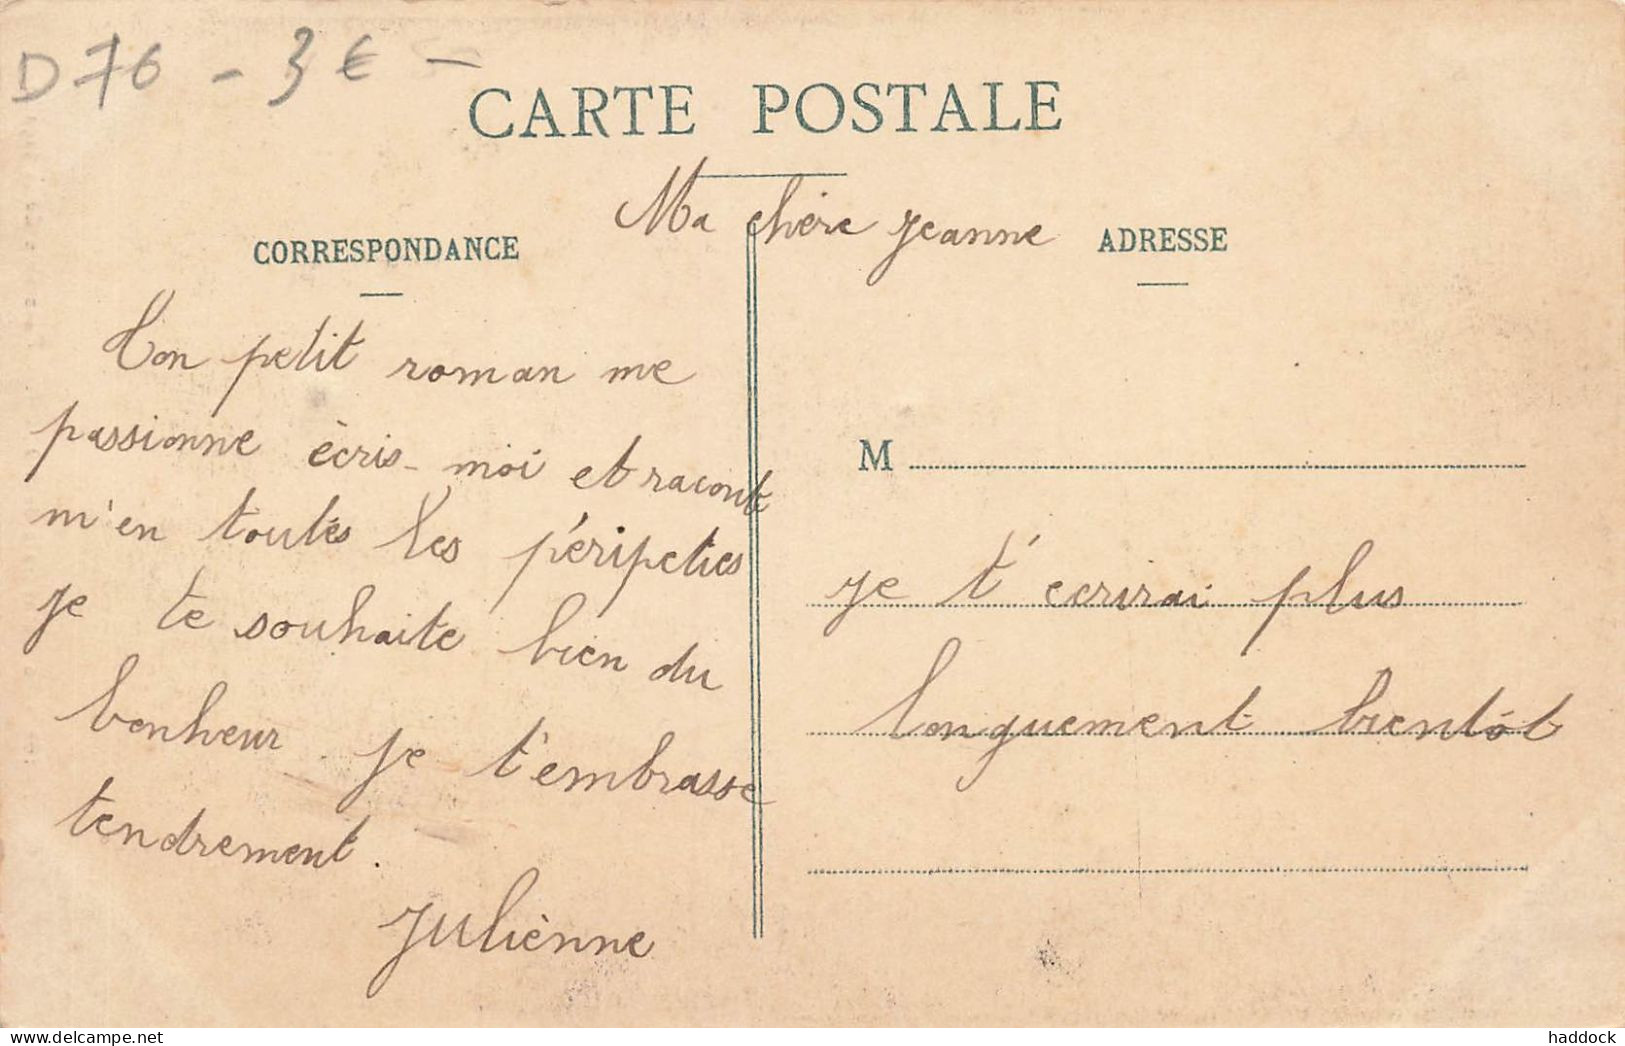 D76 - 3€ -
CARTE POSTALE
Ma chère Jeanne
CORRESPONDANCE
ADRESSE
Ton petit roman me
passionne ècris-moi et raconte
m'en toutes les péripeties
Je te souhaite bien du
bonheur Je t'embrasse
tendrement.
Julienne
M
Je t'ecrirai plus
longuement bientôt
www.delcampe.net
haddock